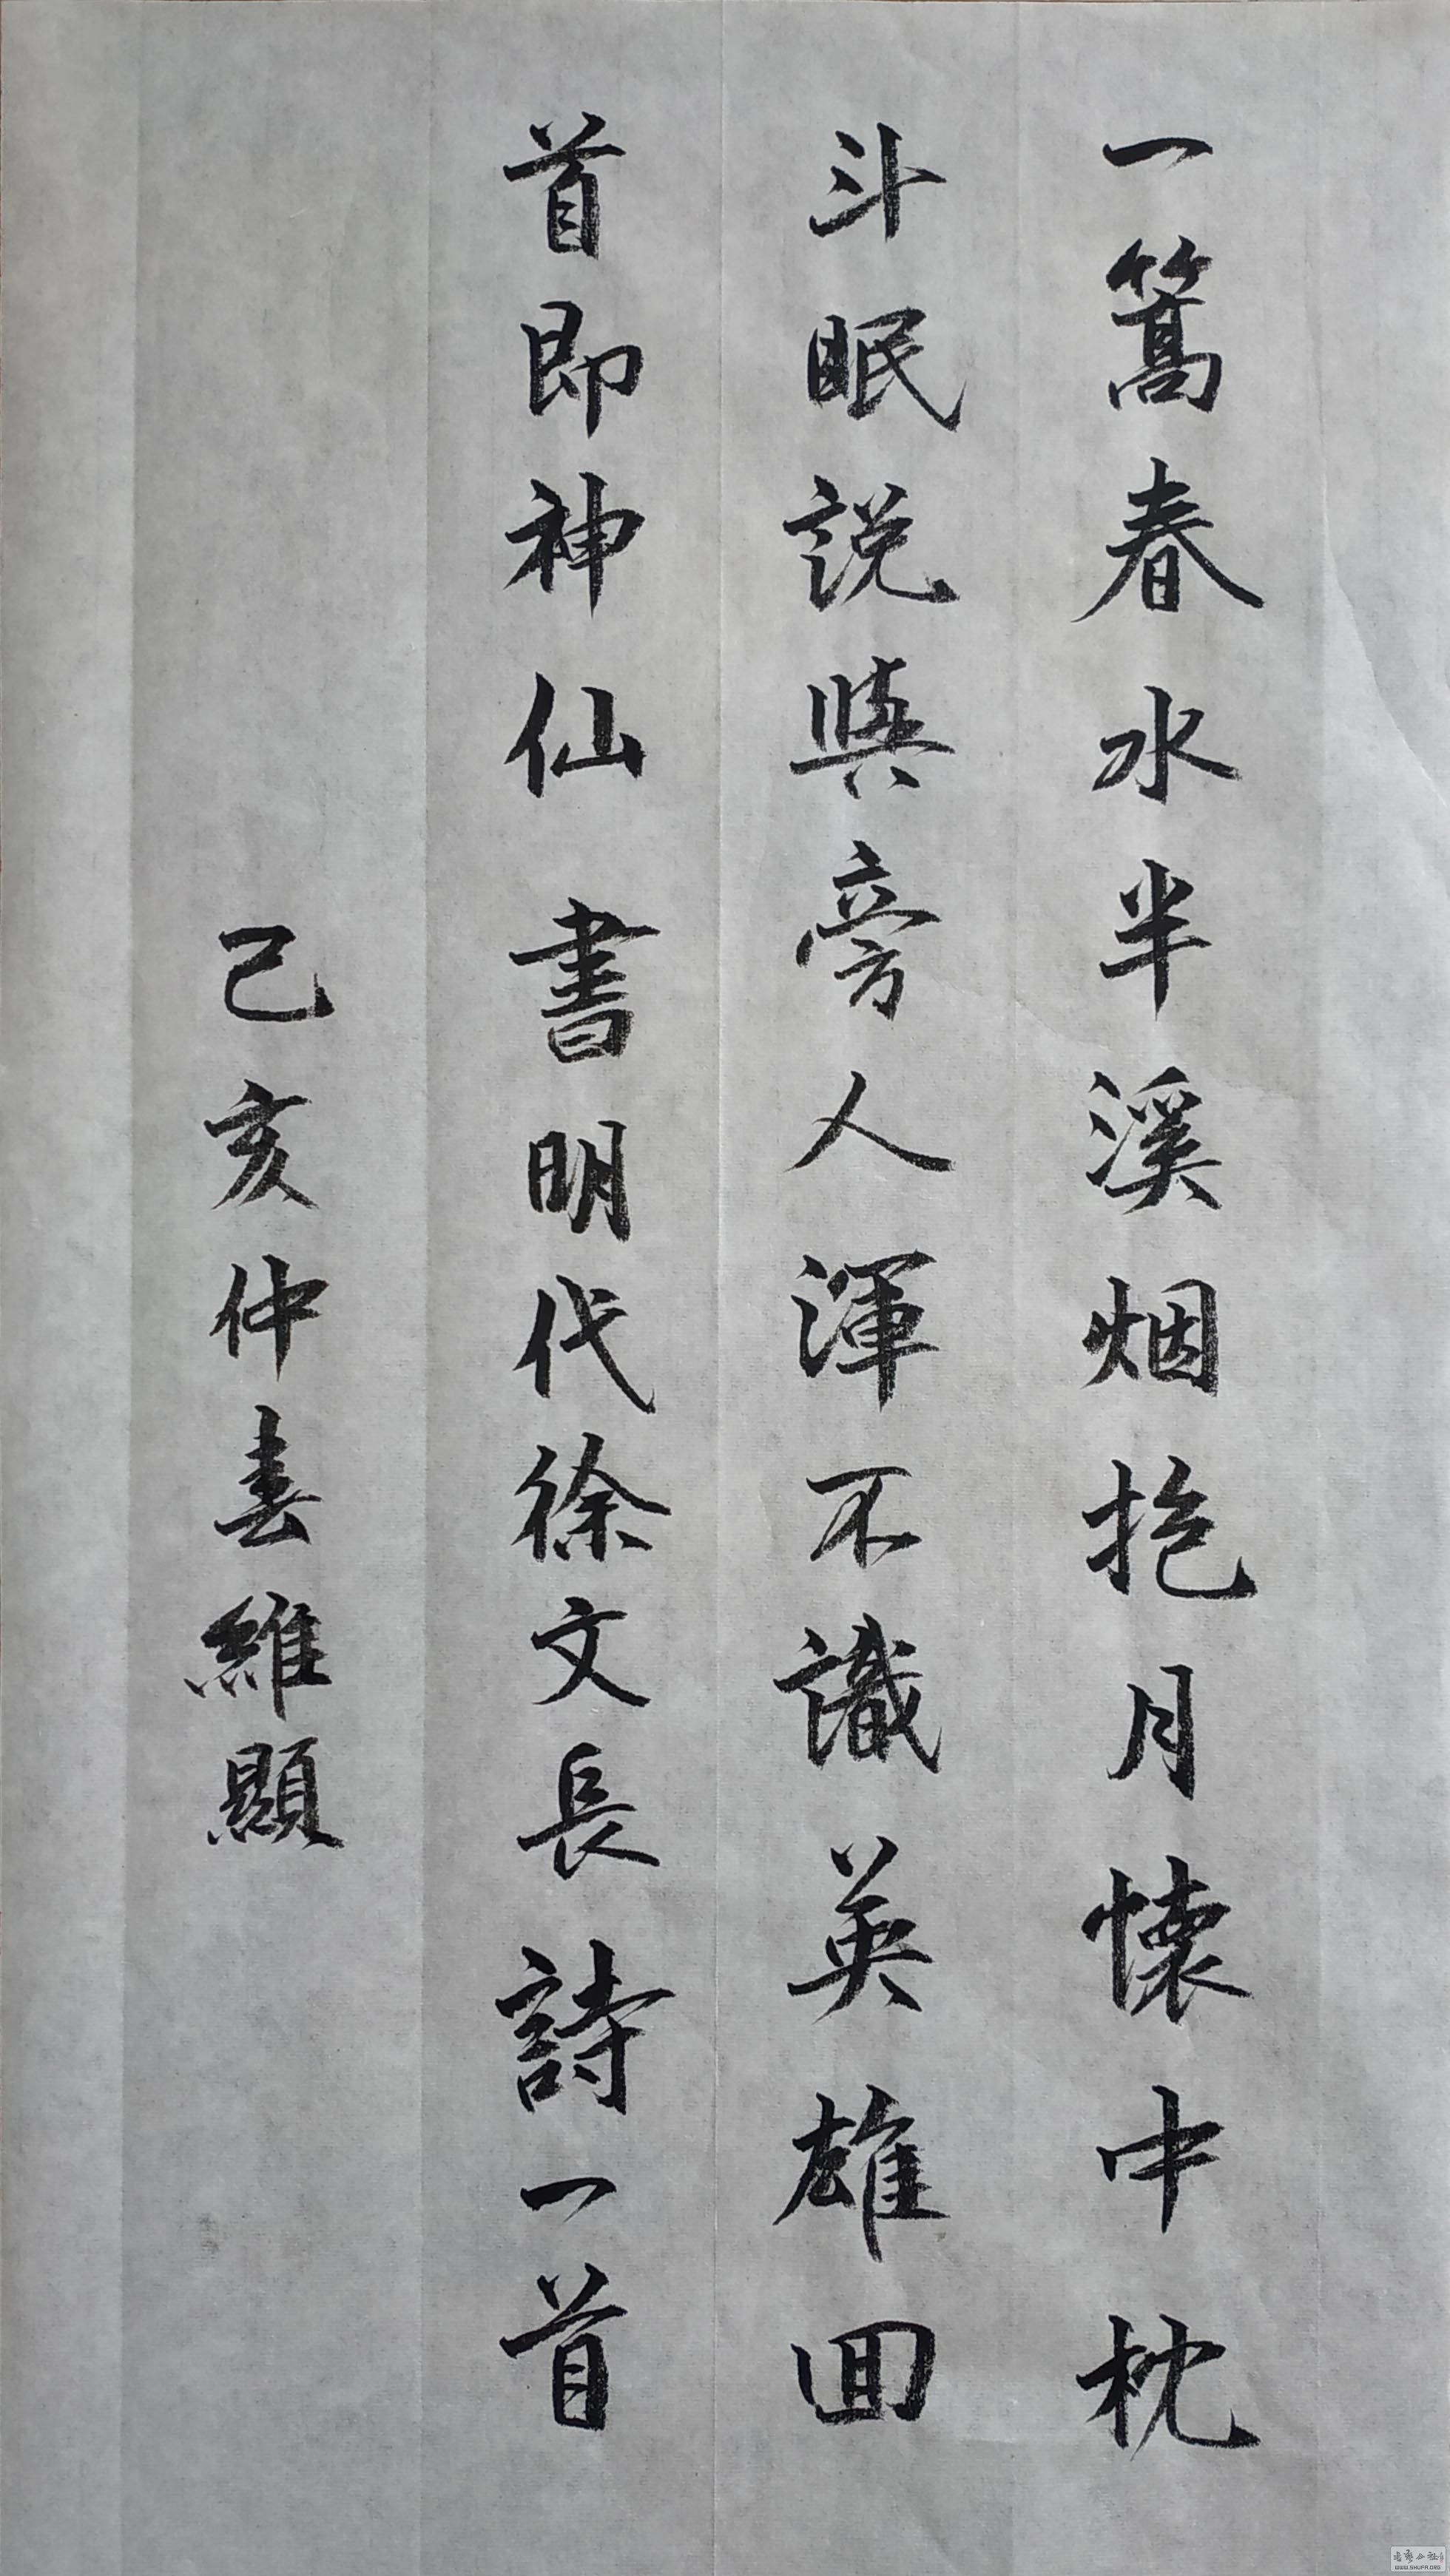 一篙春水半溪烟抱月懷中枕
斗眠説與旁人渾不識英雄回
首即神仙 書明代徐文長詩一首
己亥仲春維顯
WWW.SHUFA.ORG